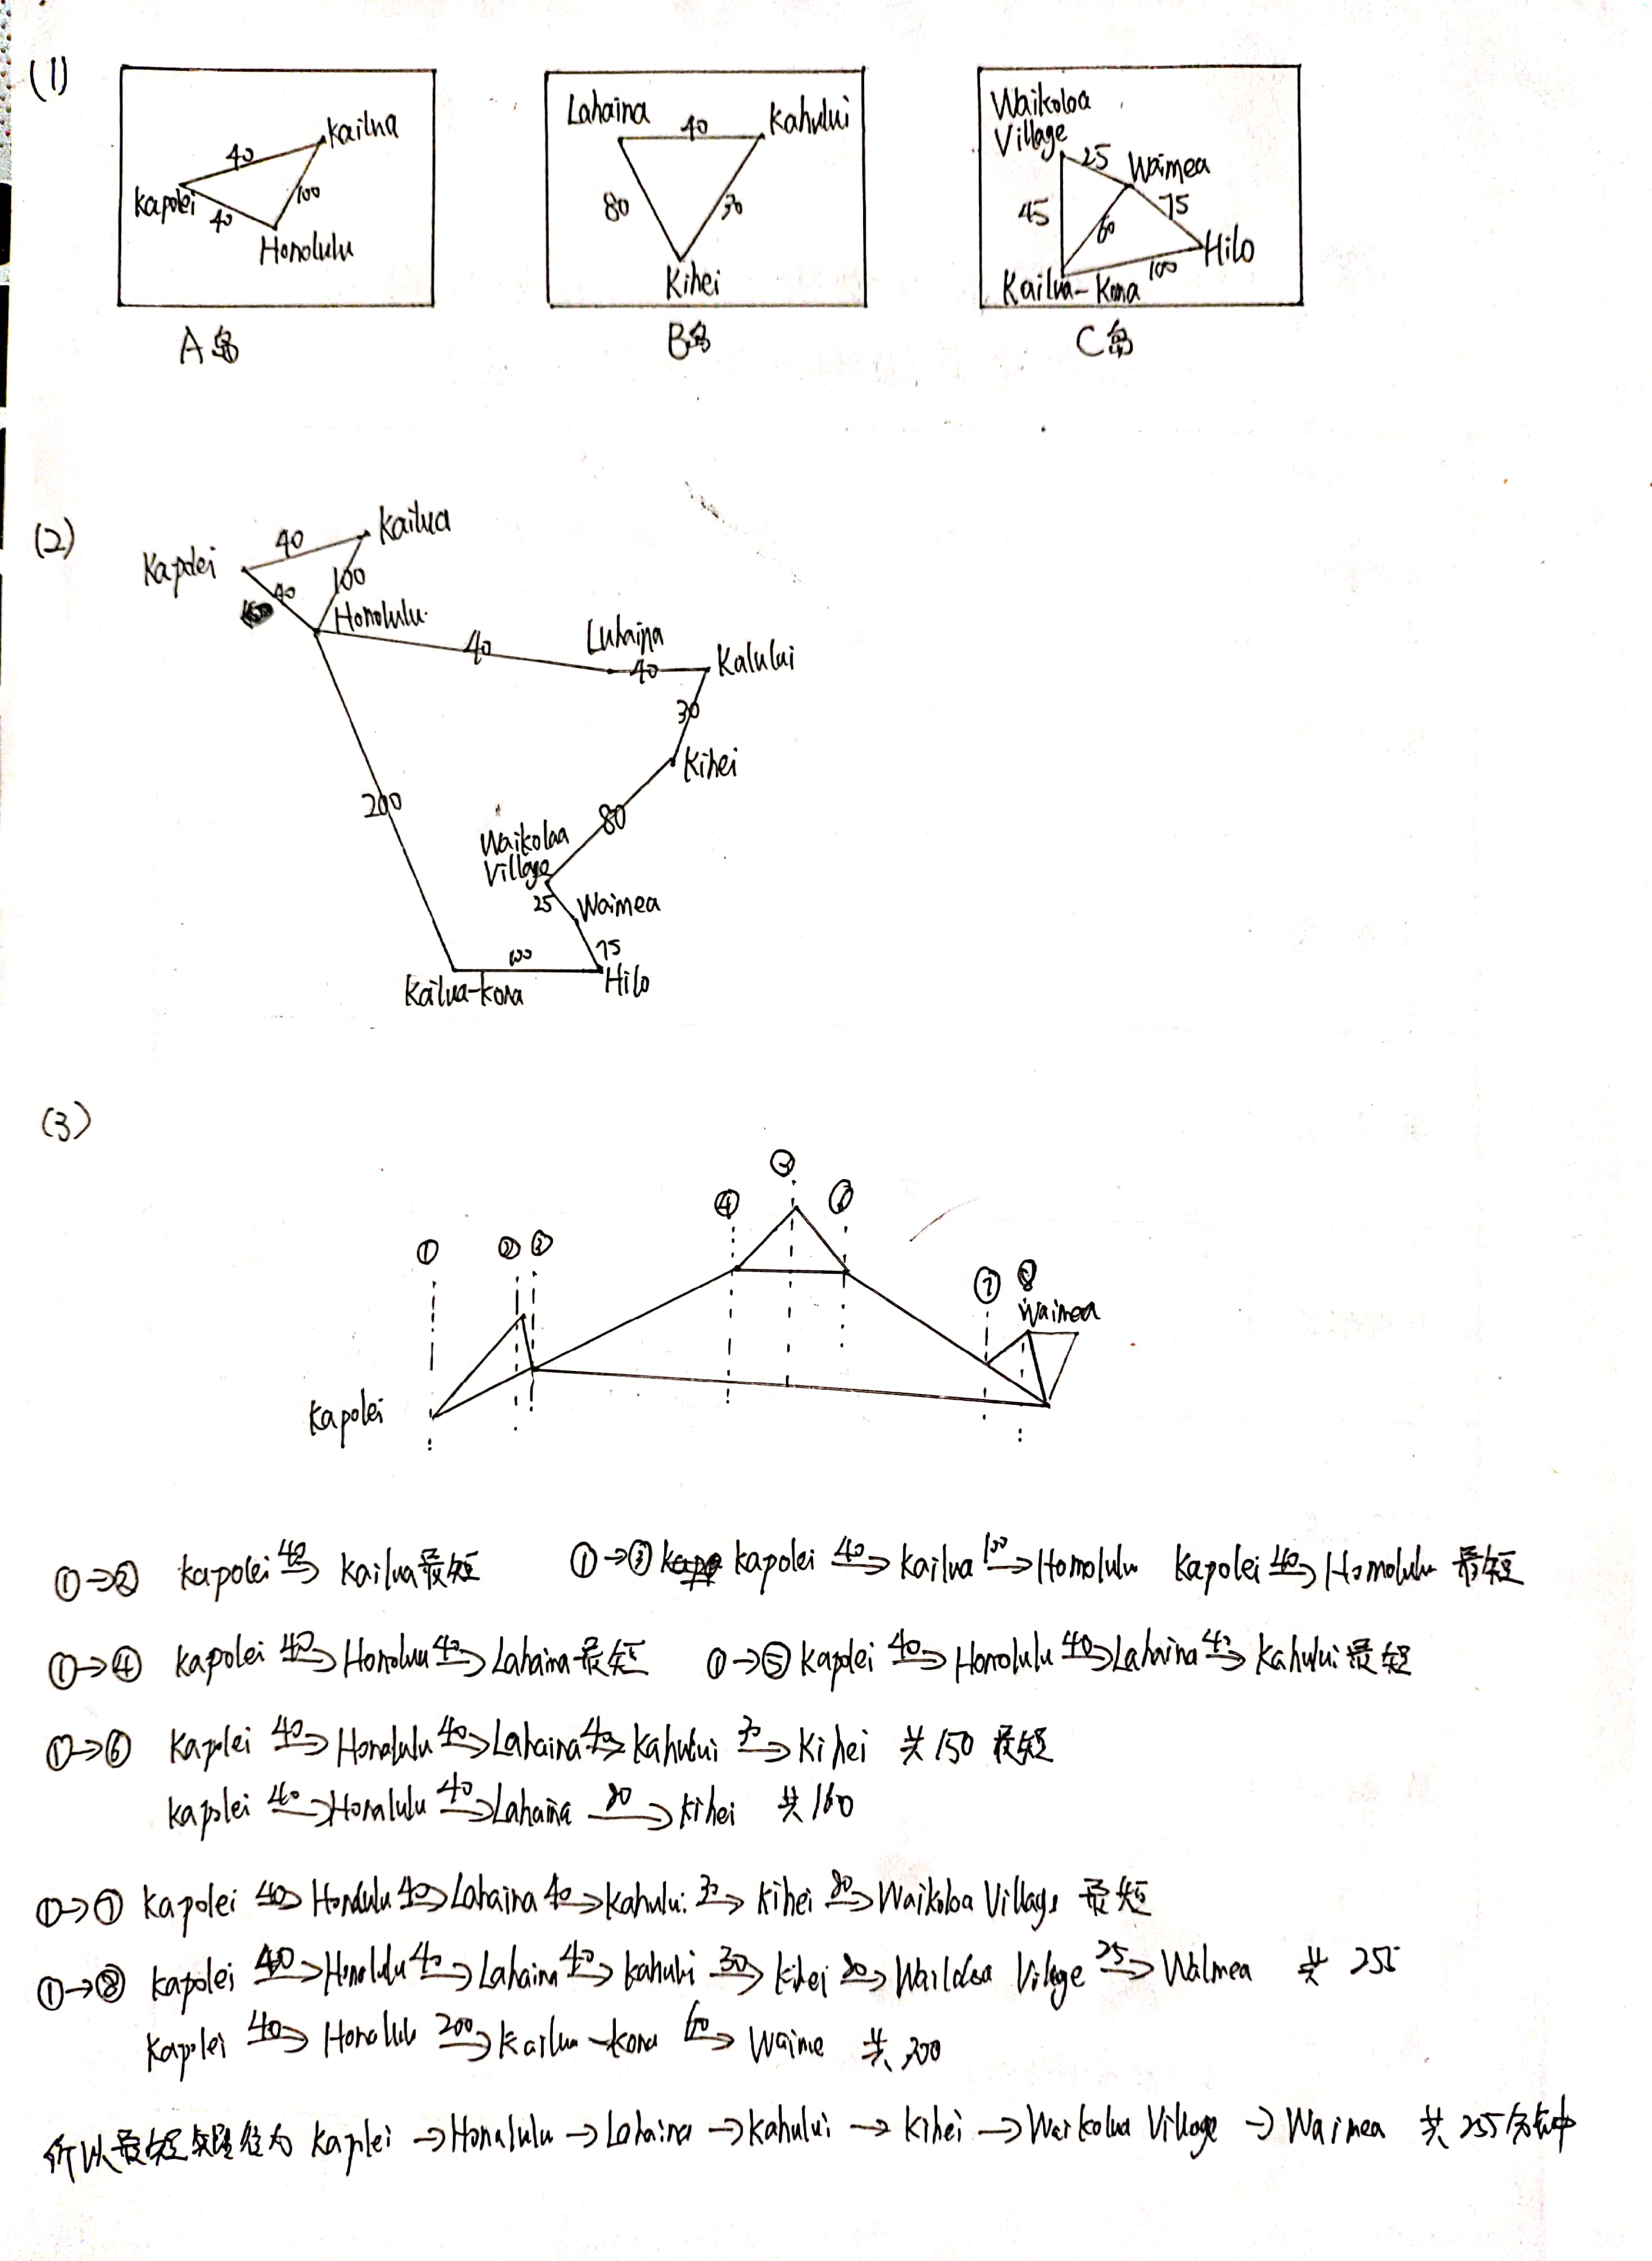 (1)
Kailua
40
Kapolei
100
40
Honolulu
A岛
Lahaina
40
Kahului
80
30
Kihei
B岛
Waikoloa
Village
25
Waimea
45
75
60
Hilo
100
Kailua-Kona
C岛
(2)
Kailua
40
Kapolei
100
40
Honolulu
40
Luhaina
40
Kalului
30
Kihei
200
80
Waikoloa
Village
25
Waimea
75
100
Kailua-kona
Hilo
(3)
④
①
⑦
Waimea
Kapolei
①→② Kapolei 40→ Kailua最短 ①→③ kapolei 40→ Kailua 100→Homolulu Kapolei 40→ Homolulu 最短
①→④ Kapolei 40→Honoluu 40→Lahaina最短 ①→⑤ Kapolei 40→Honolulu 40→Lahaina 40→ Kahului最短
①→⑥ Kapolei 40→Honolulu 40→Lahaina 40→ Kahului 30→Kihei 共150 最短
Kapolei 40→Honalulu 40→Lahaina 80→ Kihei 共160
①→⑦ Kapolei 40→Honolulu 40→Lahaina 40→Kahului 30→ Kihei 80→Waikoloa Village 最短
①→⑧ Kapolei 40→Honolulu 40→Lahaina 40→ Kahului 30→ Kihei 80→ Waikoloa Village 25→ Walmea 共 255
Kapolei 40→ Honolulu 200→Kailua-kona 60→ Waime 共 300
所以最短 路径为 Kapolei →Honalulu →Lahaina →Kahului → Kihei →Waikoloa Village → Waimea 共255分钟